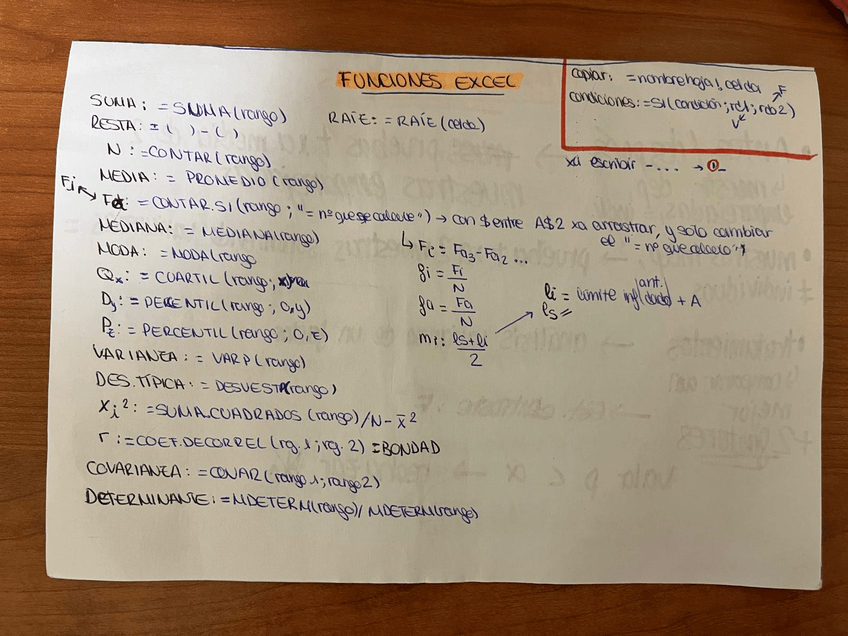 FUNCIONES EXCEL
copiar: =nombrehoja!celda
condiciones: =SI(condición; rdo1; rdo2)
V F
xa escribir -... → 0_
SUMA: =SUMA(rango)
RESTA: = ( ) - ( )
RAÍZ: = RAÍZ(celda)
N: =CONTAR(rango)
MEDIA: = PROMEDIO(rango)
Fi
Fa: = CONTAR.SI(rango; "= nº que se calcule") → con $ entre A$2 xa arrastrar, y solo cambiar
el "= nº que calculo"
MEDIANA: = MEDIANA(rango)
↳ Fi = Fa3 - Fa2 ...
MODA: = MODA(rango
fi = Fi/N
Qx: = CUARTIL(rango; x)
fa = Fa/N
li = límite inf ant. + A
ls =
Dy: = PERCENTIL(rango; 0,y)
mi: ls+li/2
Pz: = PERCENTIL(rango; 0,z)
VARIANZA: = VARP(rango)
DES.TÍPICA: = DESVEST(rango)
Xi²: =SUMA.CUADRADOS(rango)/N-x̄²
r: =COEF.DECORREL(rg.1; rg.2) = BONDAD
COVARIANZA: =COVAR(rango1; rango2)
DETERMINANTE: =MDETERM(rango)/MDETERM(rango)